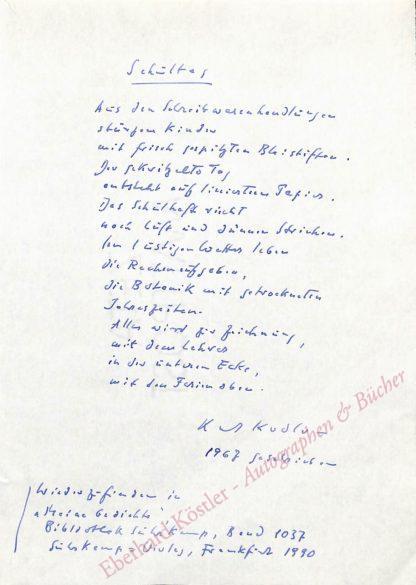 Schultag
Aus den Schreibwarenhandlungen
stürzen Kinder
mit frisch gespitzten Bleistiften.
Der gekritzelte Tag
entsteht auf liniertem Papier.
Das Schulheft riecht
nach Luft und dünnen Strichen.
Im lustigen Wetter leben
die Rechenaufgaben,
die Botanik mit getrockneten
Jahreszeiten.
Alles wird zur Zeichnung,
mit dem Lehrer
in der unteren Ecke,
mit den Ferien oben.
1967 geschrieben
Wiederzufinden in
"Meine Gedichte"
Bibliothek Suhrkamp, Band 1037
Suhrkamp-Verlag, Frankfurt 1990
Eberhard Köstler - Autographen & Bücher